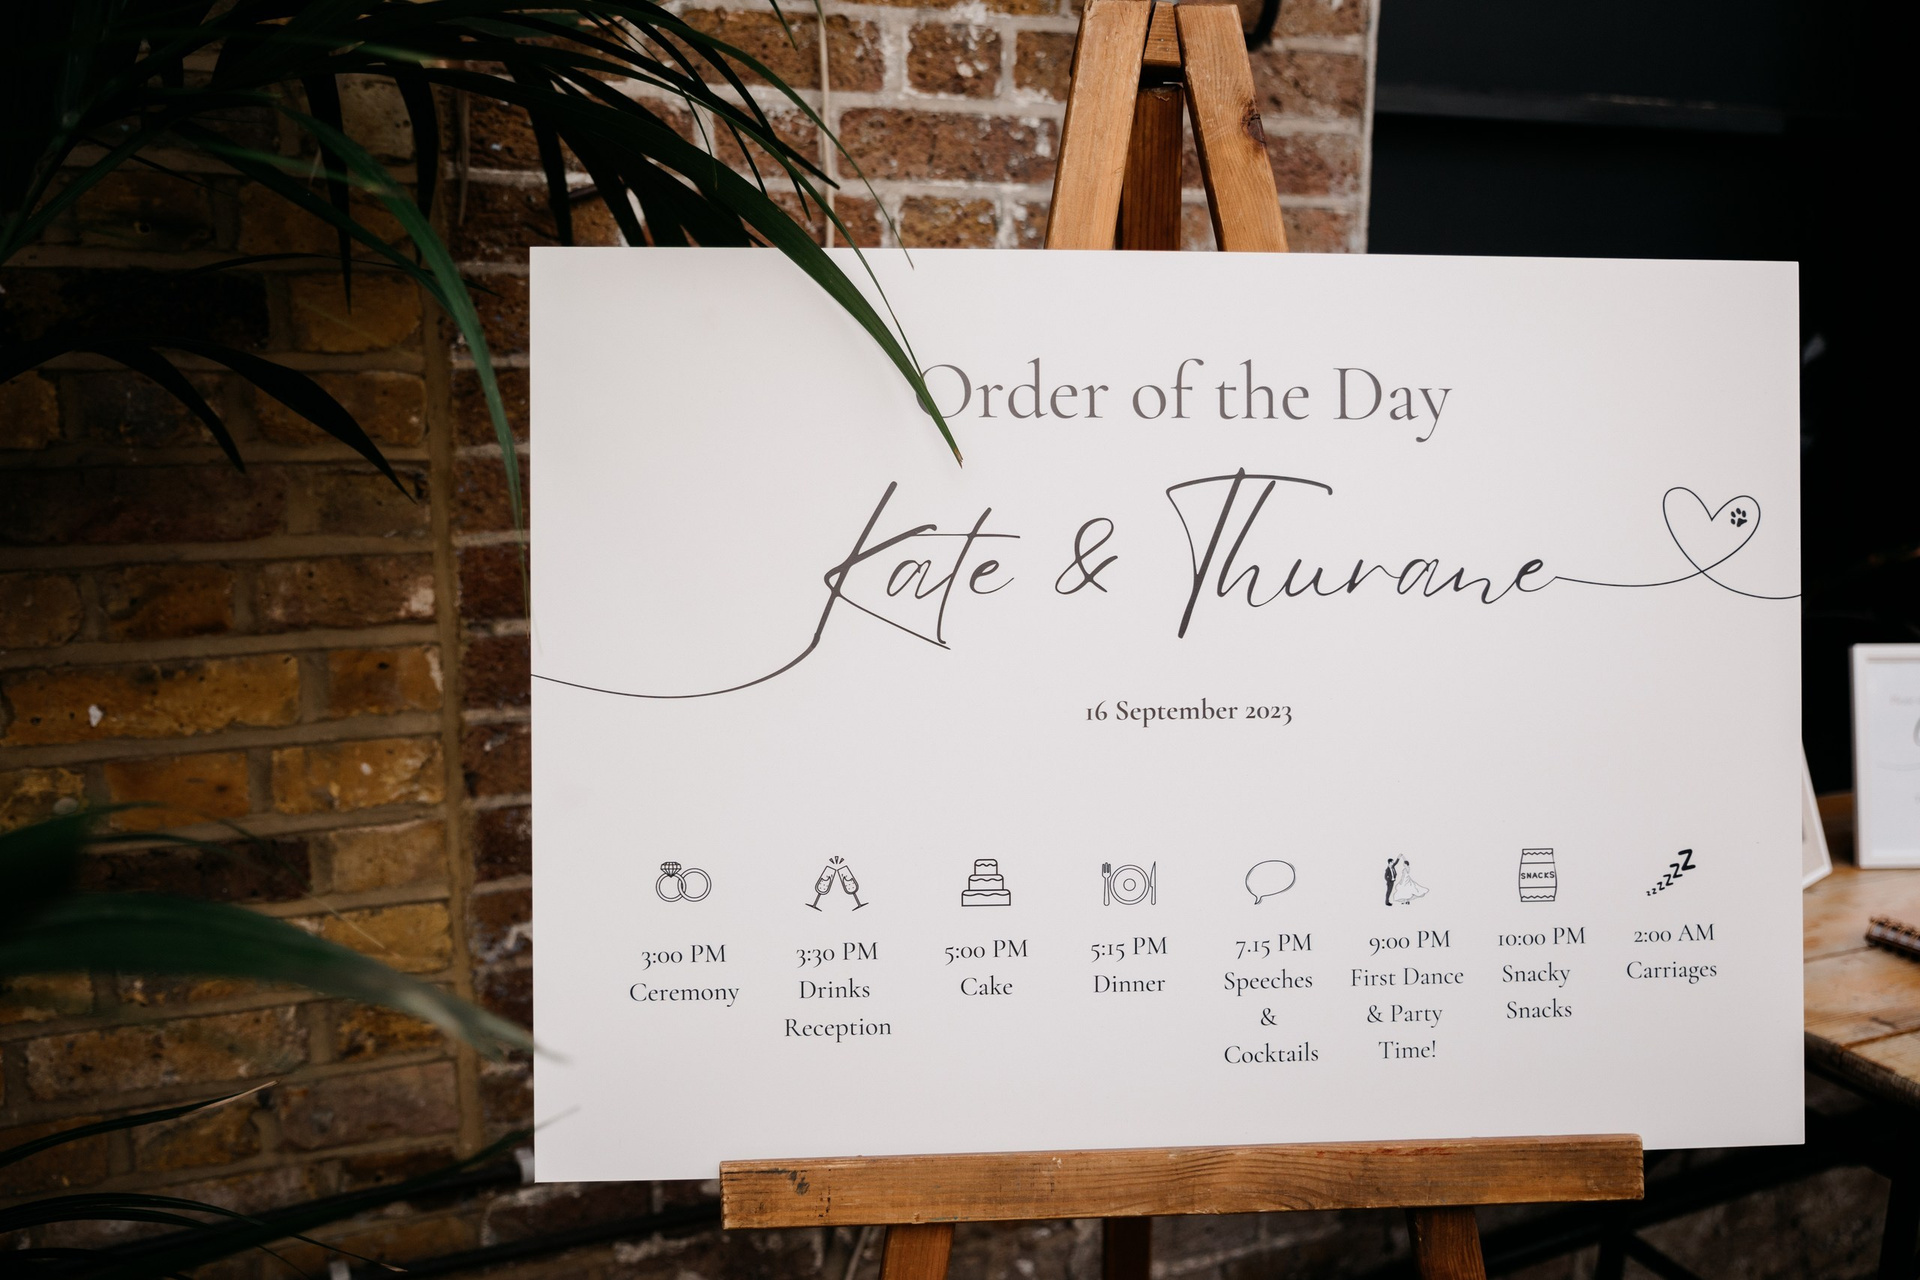 Order of the Day
Kate & Thurane
16 September 2023
SNACKS
zzzzzZ
3:00 PM
Ceremony
3:30 PM
Drinks
Reception
5:00 PM
Cake
5:15 PM
Dinner
7.15 PM
Speeches
&
Cocktails
9:00 PM
First Dance
& Party
Time!
10:00 PM
Snacky
Snacks
2:00 AM
Carriages